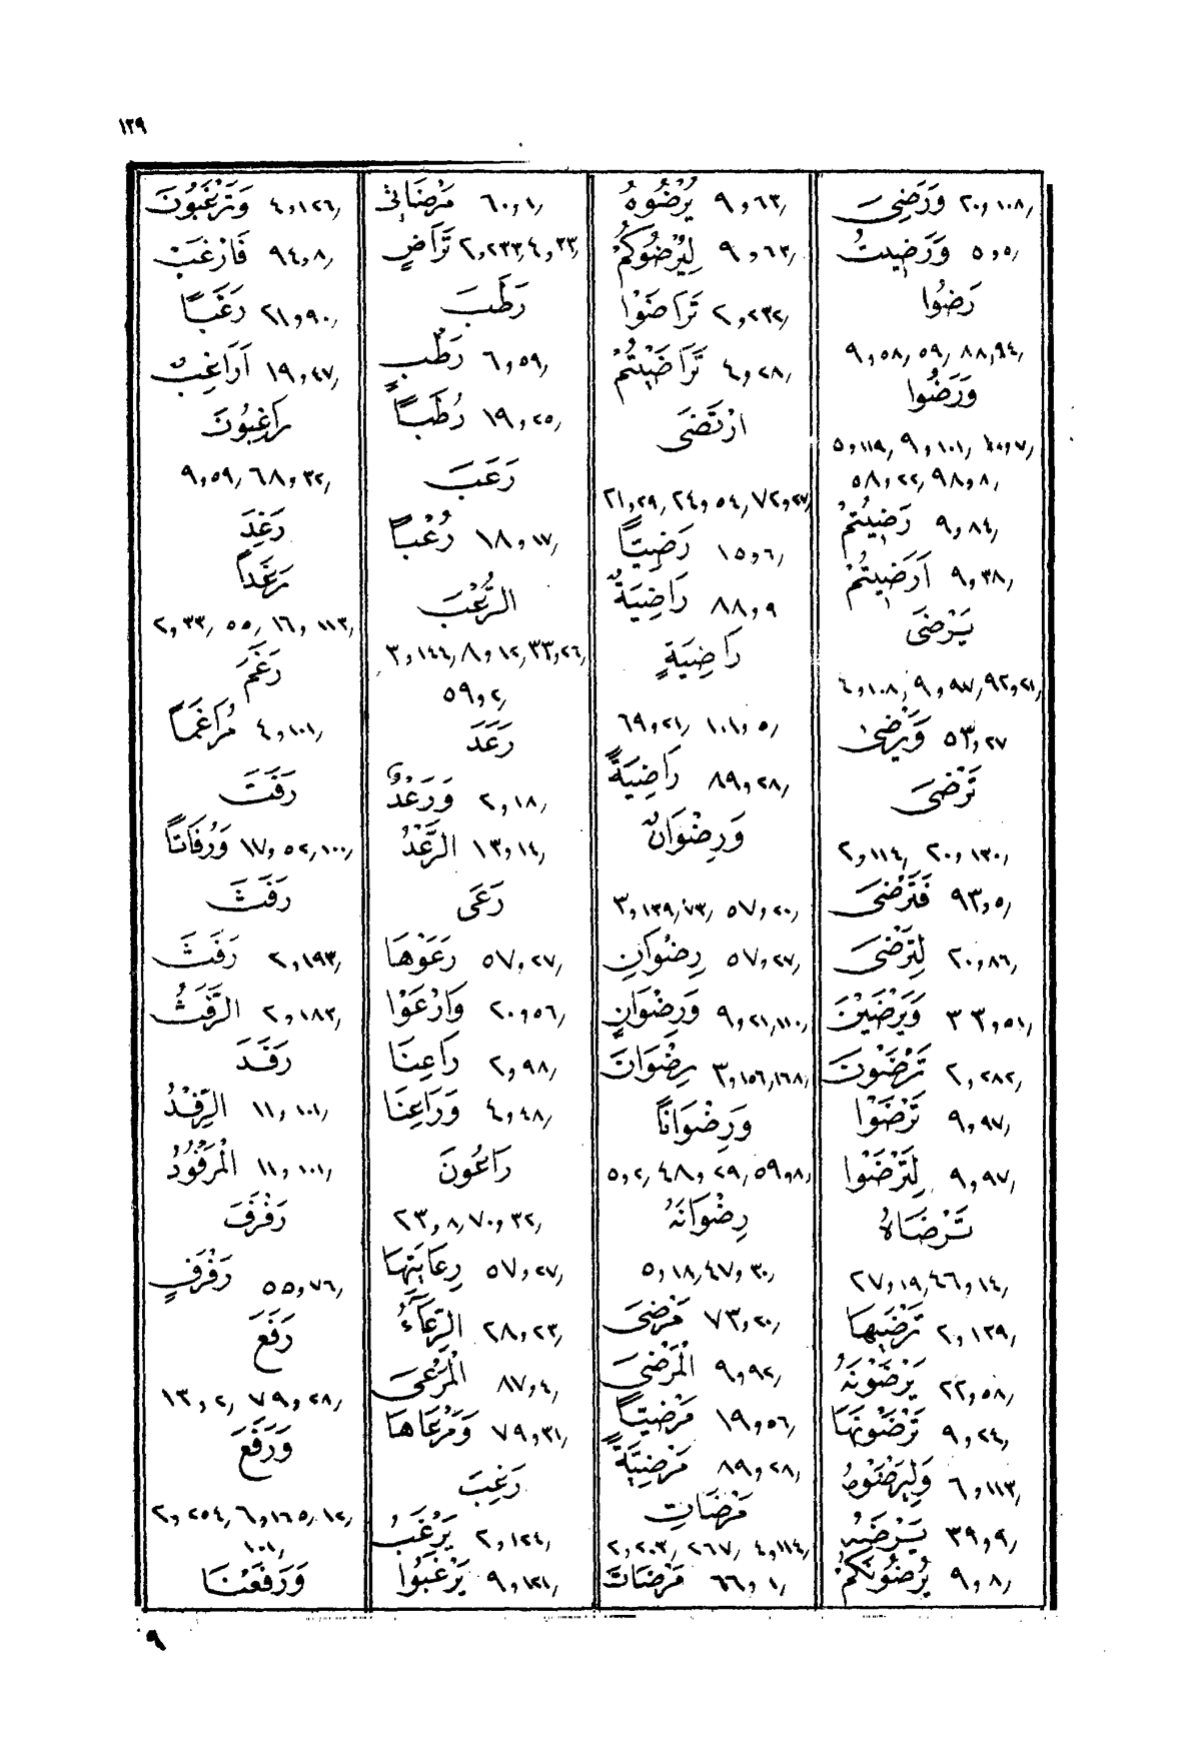 ١٢٩
وَرَضِىَ ٢٠,١٠٨
وَرَضِيتُ ٥,٥
رَضُوا
٩,٥٨, ٥٩, ٨٨,٩٤
وَرَضُوا
٥,١١٩, ٩,١٠١, ١٠,٧
٥٨,٢٢, ٩٨,٨
رَضِيتُمْ ٩,٨٤
اَرَضِيتُمْ ٩,٣٨
يَرْضَى
٤,١٠٨, ٩,٩٧, ٩٢,٢١
وَيَرْضٰى ٥٣,٢٧
تَرْضَى
٢,١١٤, ٢٠,١٣٠
فَتَرْضَى ٩٣,٥
لِتَرْضَى ٢٠,٨٦
وَيَرْضَيْنَ ٣٣,٥١
تَرْضَوْنَ ٢,٢٨٢
تَرْضَوْا ٩,٩٧
لِتَرْضَوْا ٩,٩٧
تَرْضَاهُ
٢٧,١٩, ٤٦,١٤
تَرْضٰيهَا ٢,١٣٩
يَرْضَوْنَهُ ٢٢,٥٨
تَرْضَوْنَهَا ٩,٢٤
وَلِيَرْضَوْهُ ٦,١١٣
يَرْضَهُ ٣٩,٩
يُرْضُونَكُمْ ٩,٨
يُرْضُوهُ ٩,٦٣
لِيُرْضُوكُمْ ٩,٦٣
تَرَاضَوْا ٢,٢٣٢
تَرَاضَيْتُمْ ٤,٢٨
ارْتَضَى
٢١,٢٩, ٢٤,٥٤, ٧٢,٢٧
رَضِيًّا ١٥,٦
رَاضِيَةٌ ٨٨,٩
رَاضِيَةٍ
٦٩,٢١, ١٠١,٥
رَاضِيَةً ٨٩,٢٨
وَرِضْوَانٌ
٣,١٣٩, ٧٣, ٥٧,٢٠
رِضْوَانِ ٥٧,٢٧
وَرِضْوَانٍ ٩,٢١,١١٠
رِضْوَانَ ٣,١٥٦,١٦٨
وَرِضْوَانًا
٥,٢, ٤٨,٢٩, ٥٩,٨
رِضْوَانَهُ
٥,١٨, ٤٧,٣٠
مَرْضَى ٧٣,٢٠
الْمَرْضَى ٩,٩٢
مَرْضِيًّا ١٩,٥٦
مَرْضِيَّةً ٨٩,٢٨
مَرْضَاتِ
٢,٢٠٣, ٢٦٧, ٤,١١٤
مَرْضَاتَ ٦٦,١
مَرْضَاتِى ٦٠,١
تَرَاضٍ ٢,٢٣٣, ٤,٣٣
رَطَبَ
رَطْبٍ ٦,٥٩
رُطَبًا ١٩,٢٥
رَعَبَ
رُعْبًا ١٨,١٧
الرُّعْبَ
٣,١٤٤, ٨,١٢, ٣٣,٢٦
٥٩,٢
رَعَدَ
وَرَعْدٌ ٢,١٨
الرَّعْدُ ١٣,١٤
رَعَى
رَعَوْهَا ٥٧,٢٧
وَارْعَوْا ٢٠,٥٦
رَاعِنَا ٢,٩٨
وَرَاعِنَا ٤,٤٨
رَاعُونَ
٢٣,٨, ٧٠,٣٢
رِعَايَتِهَا ٥٧,٢٧
الرِّعَآءُ ٢٨,٢٣
الْمَرْعَى ٨٧,٤
وَمَرْعَاهَا ٧٩,٣١
رَغِبَ
يَرْغَبُ ٢,١٢٤
يَرْغَبُوا ٩,١٢١
وَتَرْغَبُونَ ٤,١٢٦
فَارْغَبْ ٩٤,٨
رَغَبًا ٢١,٩٠
اَرَاغِبٌ ١٩,٤٧
رَاغِبُونَ
٩,٥٩, ٦٨,٣٢
رَغِدَ
رَغَدًا
٢,٣٣, ٥٥, ١٦,١١٣
رَغَمَ
مُرَاغَمًا ٤,١٠١
رَفَتَ
وَرُفَاتًا ١٧,٥٢,١٠٠
رَفَثَ
رَفَثَ ٢,١٩٣
الرَّفَثُ ٢,١٨٣
رَفَدَ
الرِّفْدُ ١١,١٠١
الْمَرْفُودُ ١١,١٠١
رَفْرَفَ
رَفْرَفٍ ٥٥,٧٦
رَفَعَ
١٣,٢, ٧٩,٢٨
وَرَفَعَ
٢,٢٥٤, ٦,١٦٥, ١٢
١٠١
وَرَفَعْنَا
٩